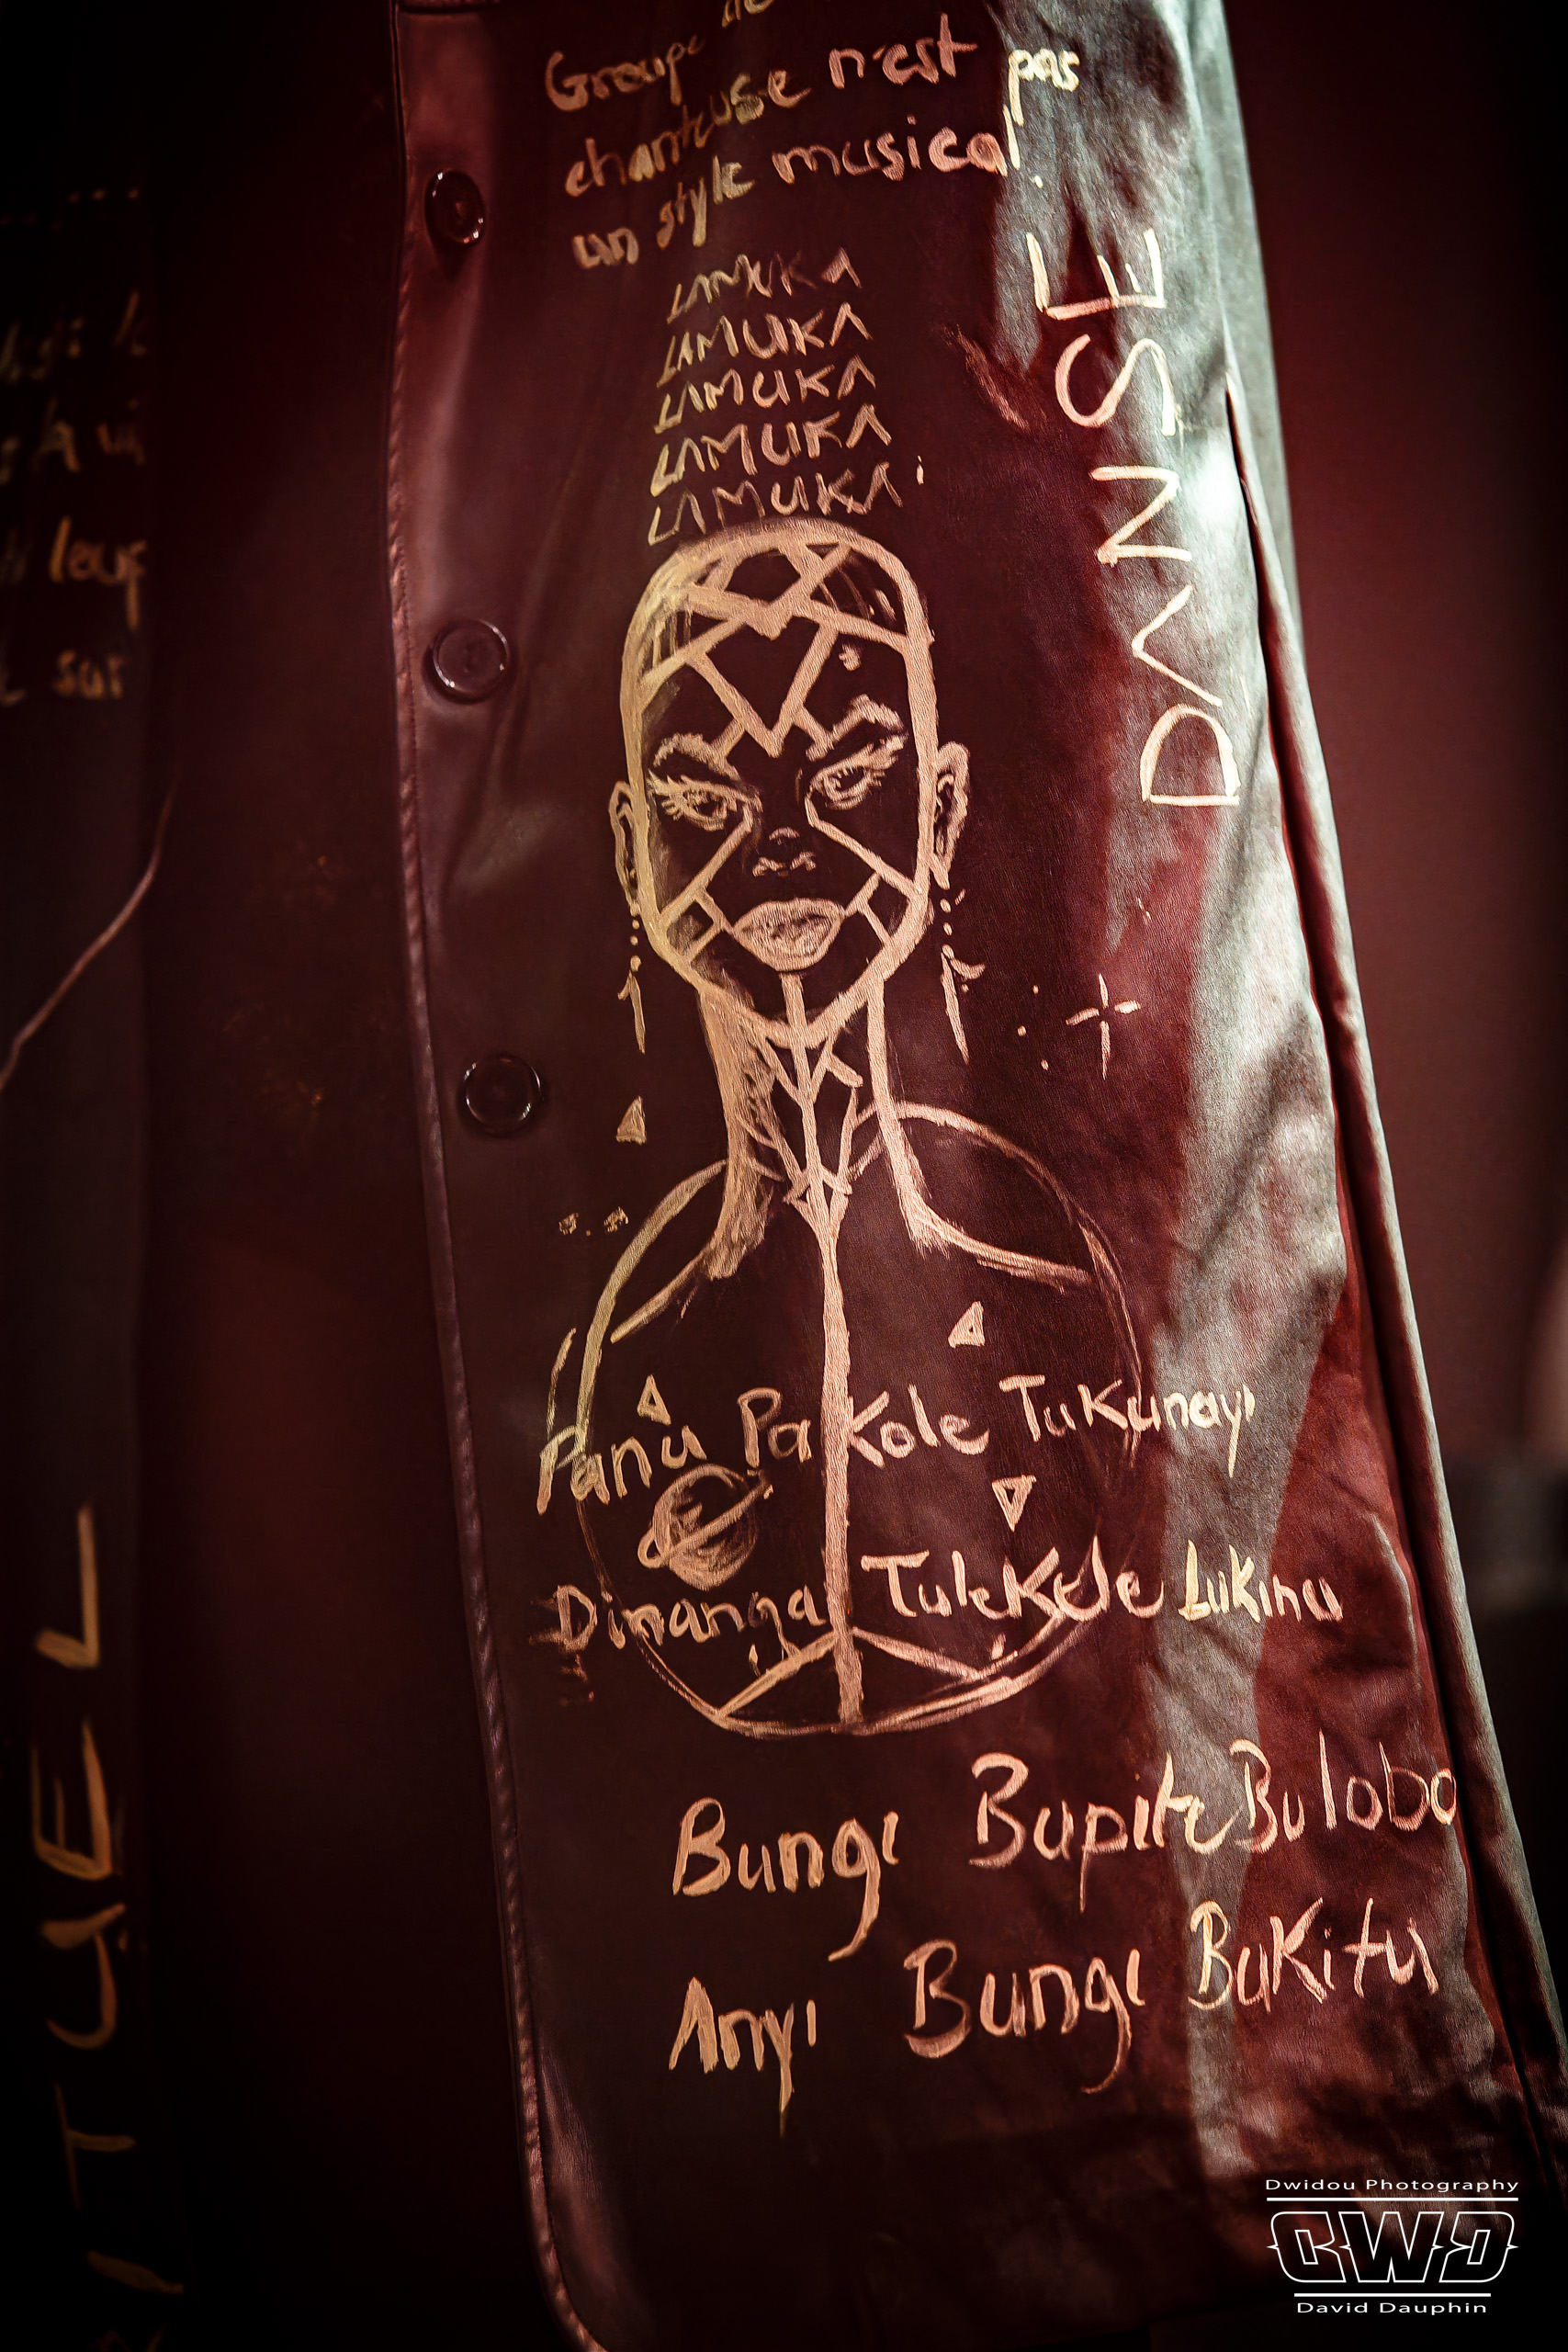 de
Groupe
chanteuse n'est pas
un style musical.
LAMUKA
LAMUKA
LAMUKA
LAMUKA
LAMUKA
DANSE
Panu Pa Kole Tukunayi
Dinanga Tulekele Lukinu
Bungi Bupite Bulobo
Anyi Bungi Bukitu
leur
sur
RITUEL
Dwidou Photography
DWD
David Dauphin